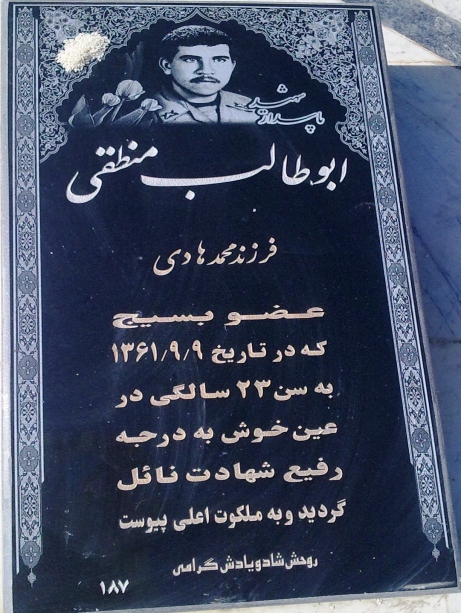 شهید
پاسدار
ابوطالب منطقی
فرزند محمد هادی
عضو بسیج
که در تاریخ ۱۳۶۱/۹/۹
به سن ۲۳ سالگی در
عین خوش به درجه
رفیع شهادت نائل
گردید و به ملکوت اعلی پیوست
روحش شاد و یادش گرامی
۱۸۷